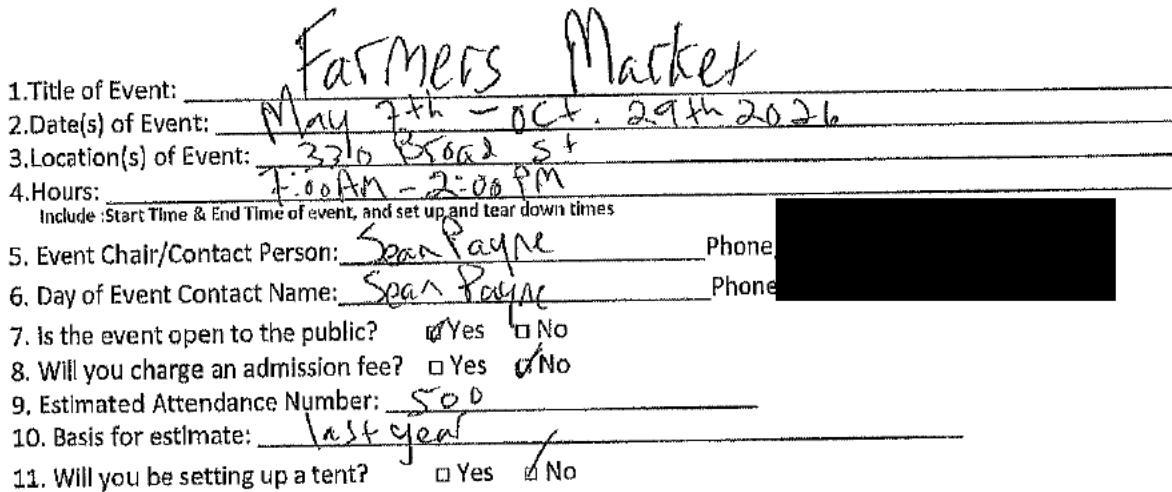 1.Title of Event: Farmers Market
2.Date(s) of Event: May 7th - Oct. 29th 2026
3.Location(s) of Event: 3310 Broad St
4.Hours: 7:00 AM - 2:00 PM
Include :Start Time & End Time of event, and set up and tear down times
5. Event Chair/Contact Person: Sean Payne Phone
6. Day of Event Contact Name: Sean Payne Phone
7. Is the event open to the public? ☑Yes □No
8. Will you charge an admission fee? □Yes ☑No
9. Estimated Attendance Number: 500
10. Basis for estimate: last year
11. Will you be setting up a tent? □Yes ☑No